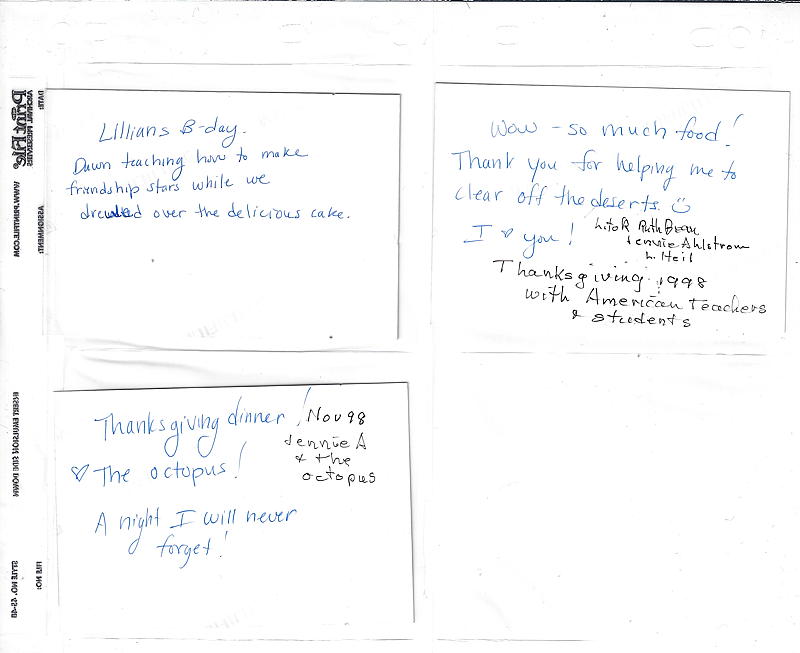 Lillians B-day.
Dawn teaching how to make
friendship stars while we
over the delicious cake.
Wow - so much food!
Thank you for helping me to
clear off the deserts.
I ♡ you!
L to R Ruth Bean
Jennie Ahlstrom
L. Heil
Thanksgiving 1998
with American Teachers
& students
Thanksgiving dinner!
Nov 98
Jennie A
& the
octopus
♡ The octopus!
A night I will never
forget!
DATE:
ASSIGNMENT:
FILE NO:
ARCHIVAL PRESERVERS
Print File
WWW.PRINTFILE.COM
INSERT EMULSION SIDE DOWN
STYLE NO.